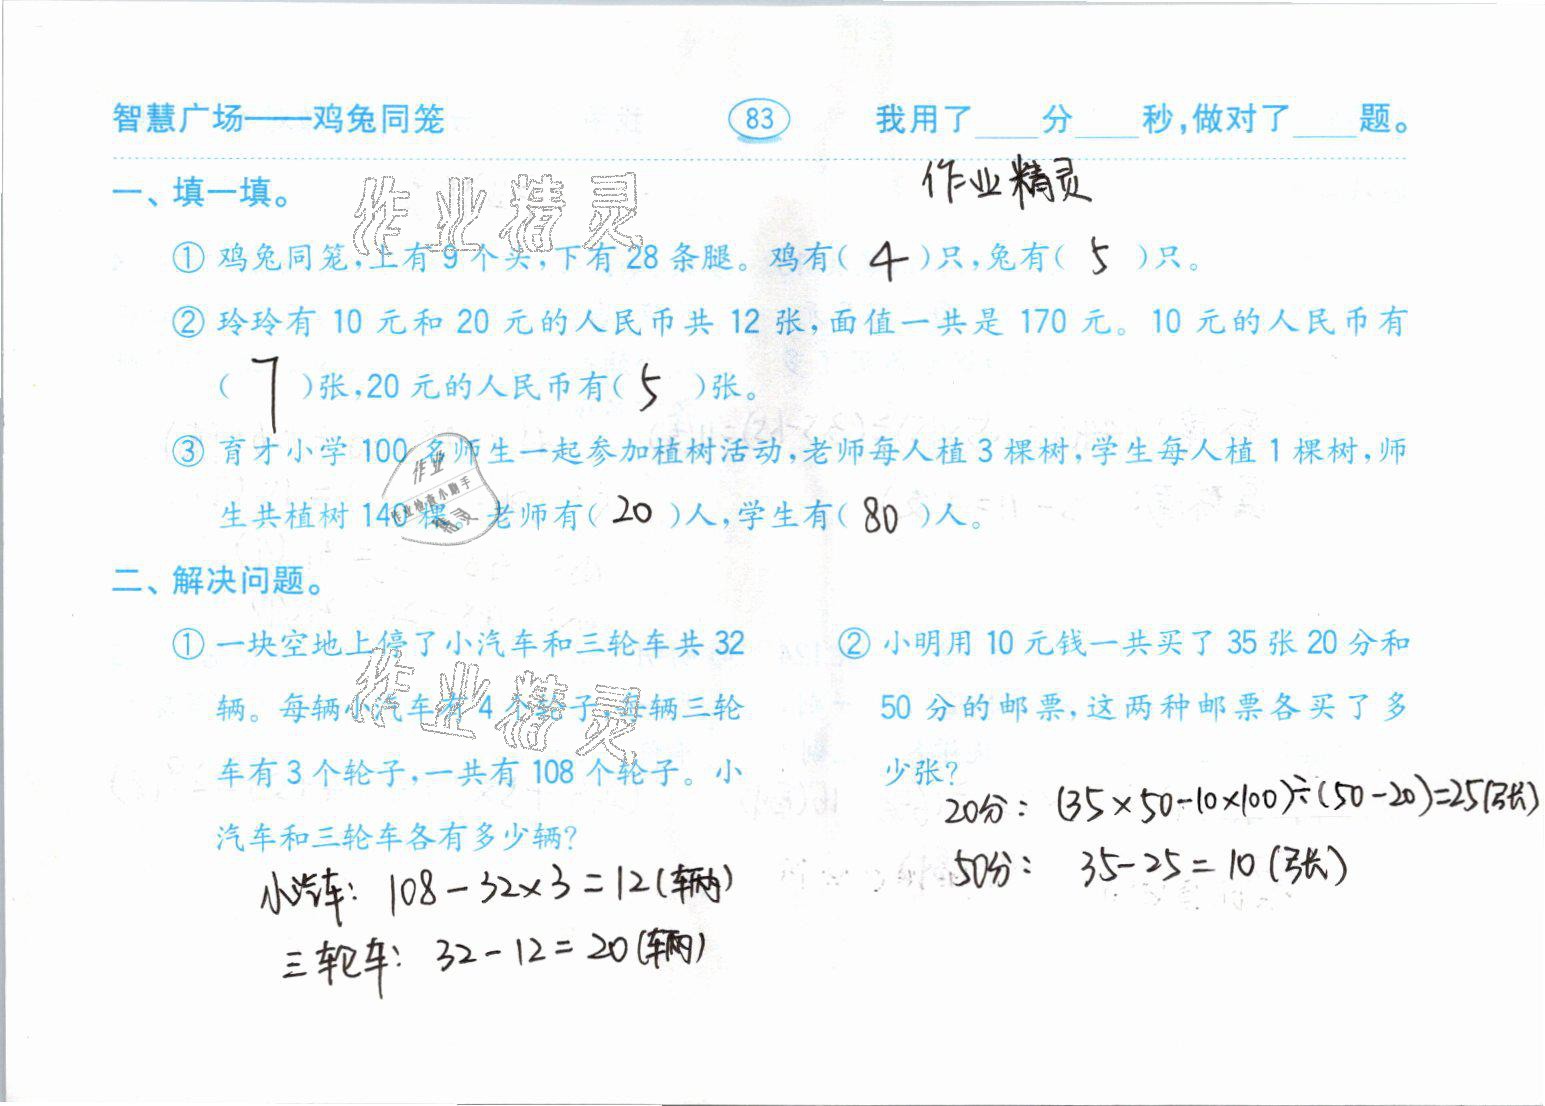 智慧广场——鸡兔同笼 83 我用了____分____秒,做对了____题。
作业精灵
一、填一填。
作业精灵
① 鸡兔同笼,上有9个头,下有28条腿。鸡有( 4 )只,兔有( 5 )只。
② 玲玲有10元和20元的人民币共12张,面值一共是170元。10元的人民币有
( 7 )张,20元的人民币有( 5 )张。
③ 育才小学100名师生一起参加植树活动,老师每人植3棵树,学生每人植1棵树,师
生共植树140棵。老师有( 20 )人,学生有( 80 )人。
作业
作业检查小助手
精灵
二、解决问题。
① 一块空地上停了小汽车和三轮车共32
辆。每辆小汽车有4个轮子,每辆三轮
车有3个轮子,一共有108个轮子。小
汽车和三轮车各有多少辆?
作业精灵
小汽车: 108-32×3=12(辆)
三轮车: 32-12=20(辆)
② 小明用10元钱一共买了35张20分和
50分的邮票,这两种邮票各买了多
少张?
20分: (35×50-10×100)÷(50-20)=25(张)
50分: 35-25=10(张)